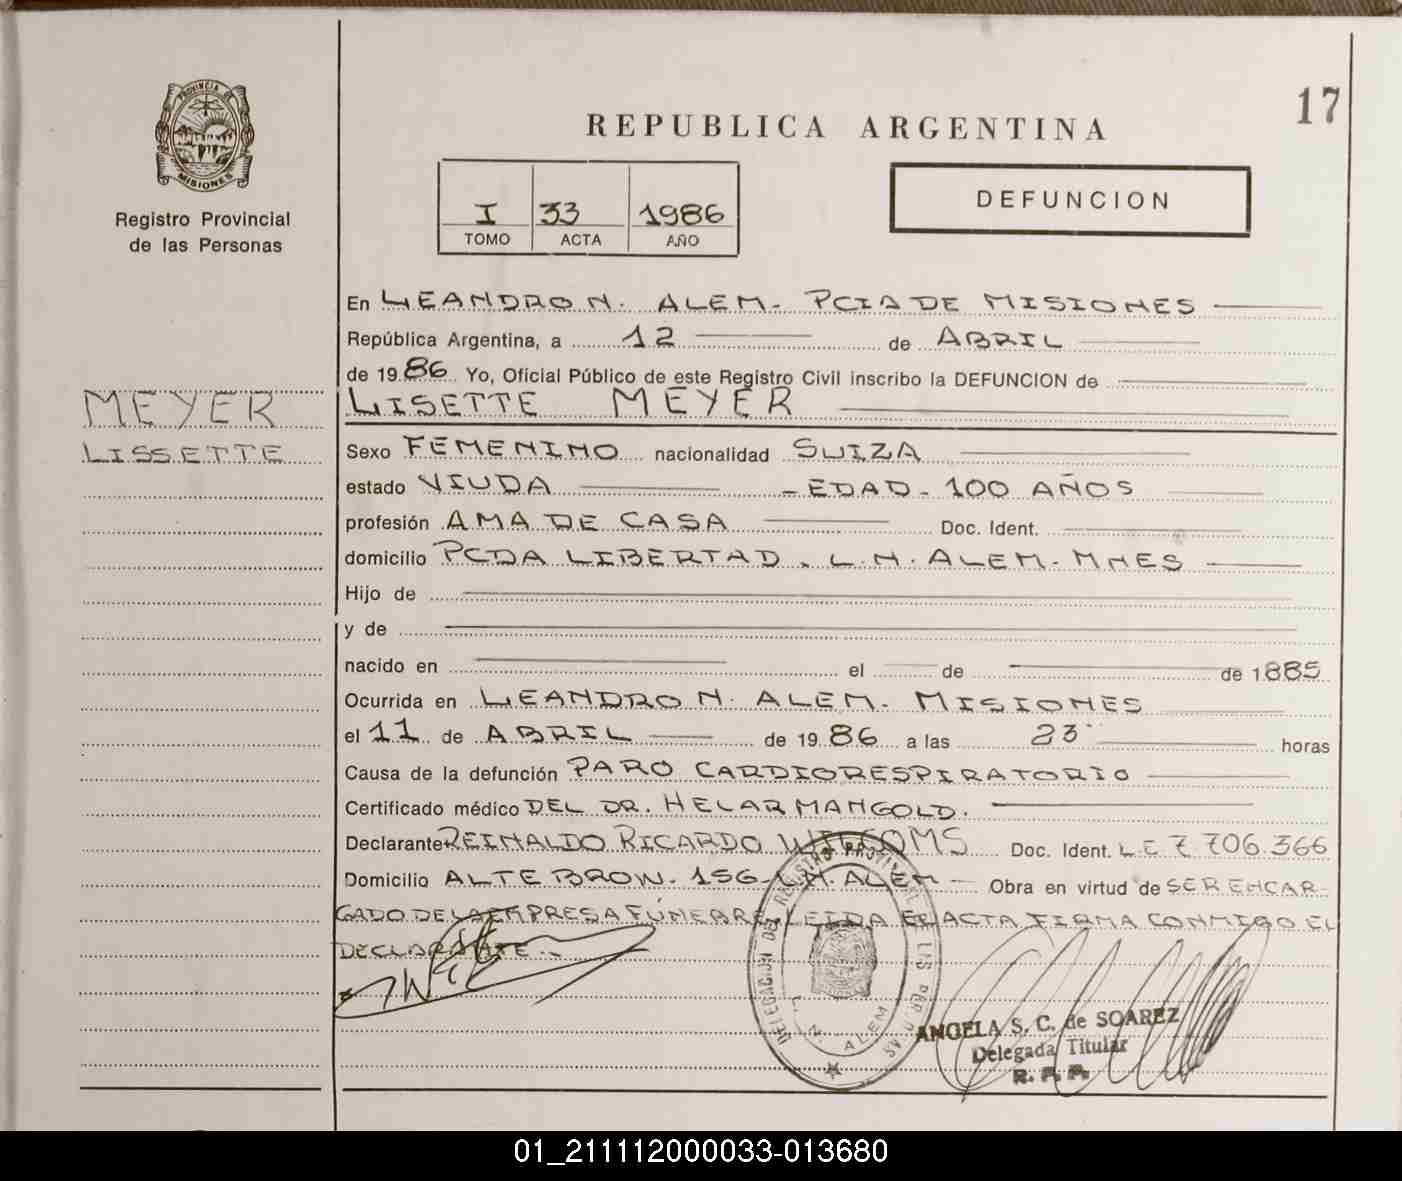 17
REPUBLICA ARGENTINA
PROVINCIA DE
MISIONES
Registro Provincial
de las Personas
I 33 1986
TOMO ACTA AÑO
DEFUNCION
En LEANDRO N. ALEM. PCIA DE MISIONES
República Argentina, a 12 de ABRIL
de 1986 Yo, Oficial Público de este Registro Civil inscribo la DEFUNCION de
MEYER
LISSETTE
LISETTE MEYER
Sexo FEMENINO nacionalidad SUIZA
estado VIUDA - EDAD - 100 AÑOS
profesión AMA DE CASA Doc. Ident.
domicilio PCDA LIBERTAD. L.N. ALEM. MNES
Hijo de
y de
nacido en el de de 1885
Ocurrida en LEANDRO N. ALEM. MISIONES
el 11 de ABRIL de 1986 a las 23 horas
Causa de la defunción PARO CARDIORESPIRATORIO
Certificado médico DEL DR. HELAR MANGOLD.
Declarante REINALDO RICARDO Doc. Ident. L E 7 706.366
Domicilio ALTE BROW. 156- L.N. ALEM - Obra en virtud de SER ENCAR-
GADO DE LA EMPRESA FÚNEBRE. LEIDA EL ACTA FIRMA CONMIGO EL
DECLARANTE.-
DELEGACION DEL REGISTRO PROVINCIAL DE LAS PERSONAS
L. N. ALEM
ANGELA S. C. de SOAREZ
Delegada Titular
R. P. P.
01_211112000033-013680